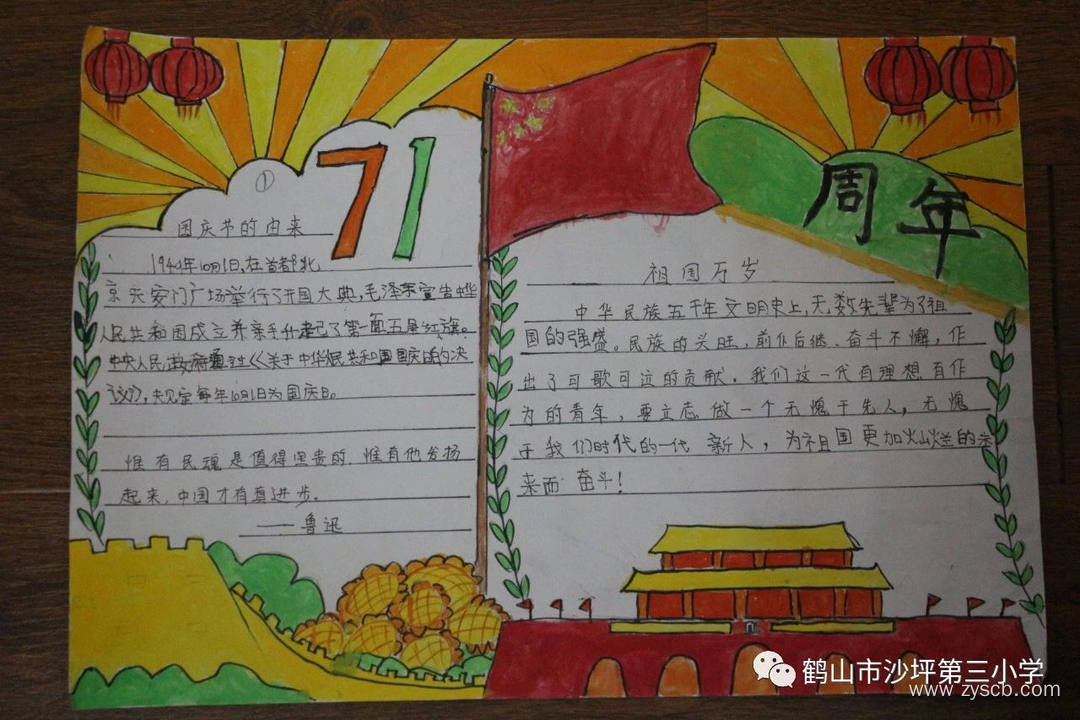 71
周年
①
国庆节的由来
1949年10月1日,在首都北
京天安门广场举行了开国大典,毛泽东宣告中华
人民共和国成立并亲手升起了第一面五星红旗。
中央人民政府通过《关于中华人民共和国国庆日的决
议》,规定每年10月1日为国庆日。
惟有民魂是值得宝贵的,惟有他发扬
起来,中国才有真进步。
——鲁迅
祖国万岁
中华民族五千年文明史上,无数先辈为了祖
国的强盛。民族的兴旺,前仆后继、奋斗不懈,作
出了可歌可泣的贡献。我们这一代有理想有作
为的青年,要立志做一个无愧于先人,无愧
于我们时代的一代新人,为祖国更加灿烂的未
来而奋斗!
鹤山市沙坪第三小学
www.zyscb.com